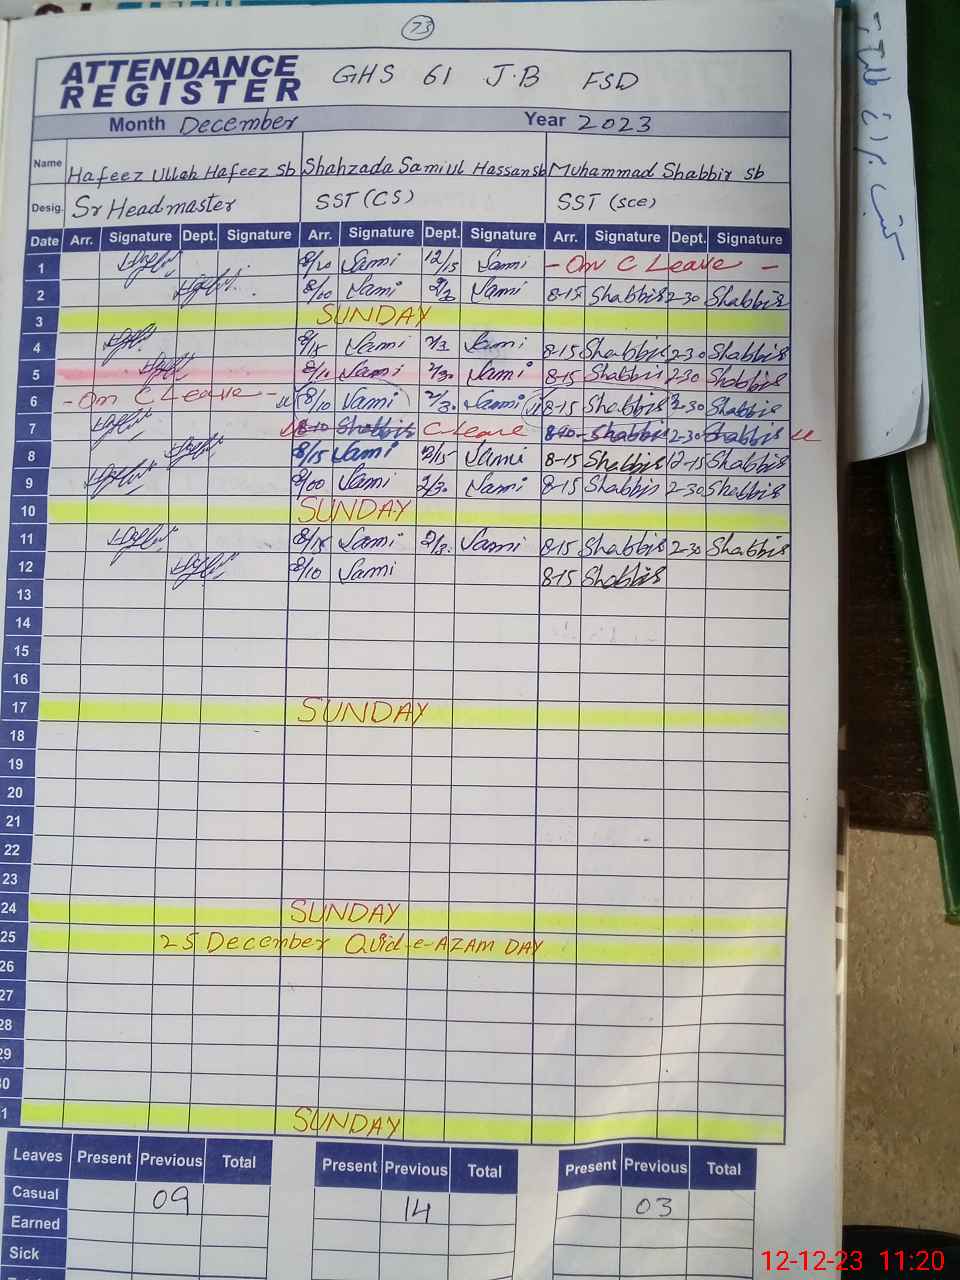 73
ATTENDANCE REGISTER GHS 61 J.B FSD
Month December Year 2023
Name Hafeez Ullah Hafeez sb Shahzada Samiul Hassan sb Muhammad Shabbir sb
Desig. Sr Headmaster SST (CS) SST (sce)
Date Arr. Signature Dept. Signature Arr. Signature Dept. Signature Arr. Signature Dept. Signature
1 8/20 Sami 12/15 Sami - On C Leave -
2 8/00 Sami 2/30 Sami 8-15 Shabbir 2-30 Shabbir
3 SUNDAY
4 8/15 Sami Sami 8-15 Shabbir 2-30 Shabbir
5 8/10 Sami 2/30 Sami 8-15 Shabbir 2-30 Shabbir
6 - On C Leave - 8/10 Sami 2/30 Sami 8-15 Shabbir 2-30 Shabbir
7 8-10 Shabbir C Leave Shabbir 2-30 Shabbir
8 8/15 Sami Sami 8-15 Shabbir 12-15 Shabbir
9 Sami 2/30 Sami 8-15 Shabbir 2-30 Shabbir
10 SUNDAY
11 8/15 Sami 2/30 Sami 8-15 Shabbir 2-30 Shabbir
12 8/10 Sami 8-15 Shabbir
13
14
15
16
17 SUNDAY
18
19
20
21
22
23
24 SUNDAY
25 25 December Quid-e-AZAM DAY
26
27
28
29
30
1 SUNDAY
Leaves Present Previous Total Present Previous Total Present Previous Total
Casual 09 14 03
Earned
Sick
12-12-23 11:20